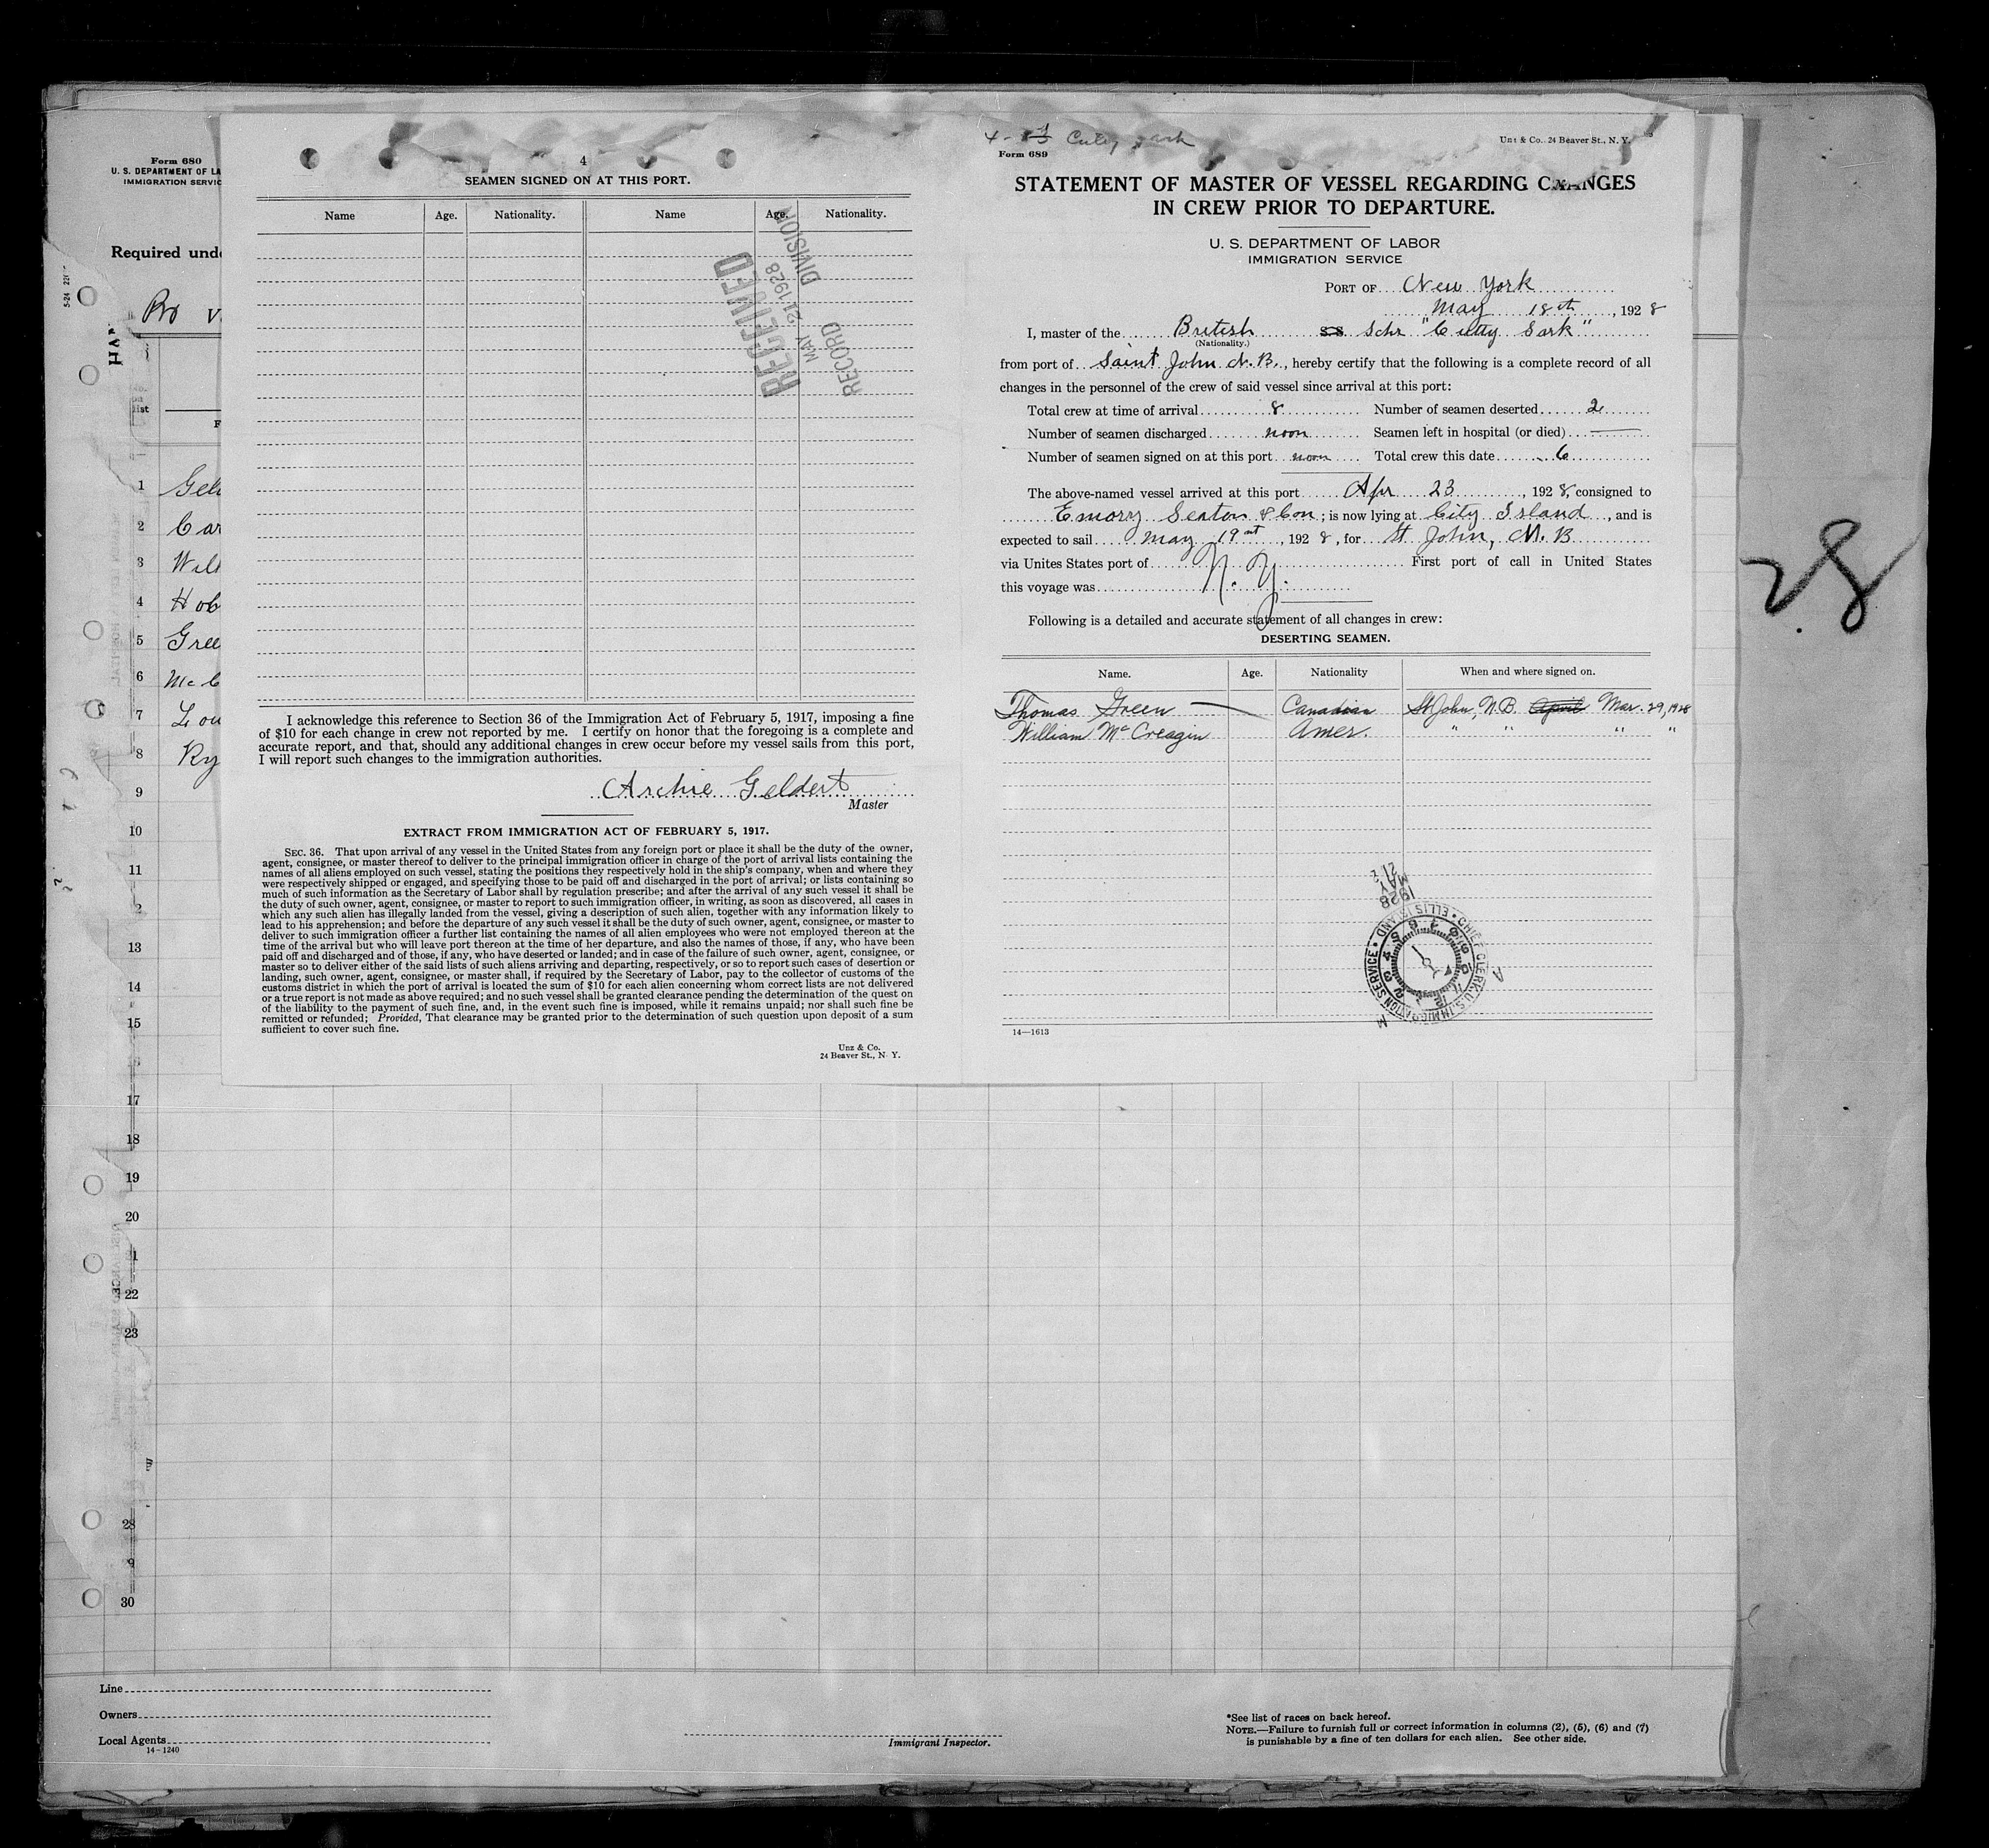 Form 680
U. S. DEPARTMENT OF LA
IMMIGRATION SERVIC
Required unde
List
1 Geld
2 Car
3 Will
4 Hob
5 Gree
6 Mc C
7 Lou
8 Ry
9
10
11
2
13
14
15
17
18
19
20
1
22
23
28
9
30
4
SEAMEN SIGNED ON AT THIS PORT.
Name Age. Nationality. Name Age. Nationality.
RECEIVED
MAY 21 1928
RECORD DIVISION
I acknowledge this reference to Section 36 of the Immigration Act of February 5, 1917, imposing a fine
of $10 for each change in crew not reported by me. I certify on honor that the foregoing is a complete and
accurate report, and that, should any additional changes in crew occur before my vessel sails from this port,
I will report such changes to the immigration authorities.
Archie Geldert
Master
EXTRACT FROM IMMIGRATION ACT OF FEBRUARY 5, 1917.
SEC. 36. That upon arrival of any vessel in the United States from any foreign port or place it shall be the duty of the owner,
agent, consignee, or master thereof to deliver to the principal immigration officer in charge of the port of arrival lists containing the
names of all aliens employed on such vessel, stating the positions they respectively hold in the ship's company, when and where they
were respectively shipped or engaged, and specifying those to be paid off and discharged in the port of arrival; or lists containing so
much of such information as the Secretary of Labor shall by regulation prescribe; and after the arrival of any such vessel it shall be
the duty of such owner, agent, consignee, or master to report to such immigration officer, in writing, as soon as discovered, all cases in
which any such alien has illegally landed from the vessel, giving a description of such alien, together with any information likely to
lead to his apprehension; and before the departure of any such vessel it shall be the duty of such owner, agent, consignee, or master to
deliver to such immigration officer a further list containing the names of all alien employees who were not employed thereon at the
time of the arrival but who will leave port thereon at the time of her departure, and also the names of those, if any, who have been
paid off and discharged and of those, if any, who have deserted or landed; and in case of the failure of such owner, agent, consignee, or
master so to deliver either of the said lists of such aliens arriving and departing, respectively, or so to report such cases of desertion or
landing, such owner, agent, consignee, or master shall, if required by the Secretary of Labor, pay to the collector of customs of the
customs district in which the port of arrival is located the sum of $10 for each alien concerning whom correct lists are not delivered
or a true report is not made as above required; and no such vessel shall be granted clearance pending the determination of the quest on
of the liability to the payment of such fine, and, in the event such fine is imposed, while it remains unpaid; nor shall such fine be
remitted or refunded; Provided, That clearance may be granted prior to the determination of such question upon deposit of a sum
sufficient to cover such fine.
Unz & Co.
24 Beaver St., N. Y.
Form 689
Unz & Co. 24 Beaver St., N. Y.
STATEMENT OF MASTER OF VESSEL REGARDING CHANGES
IN CREW PRIOR TO DEPARTURE.
U. S. DEPARTMENT OF LABOR
IMMIGRATION SERVICE
PORT OF New York
May 18th, 1928
I, master of the British SS Schr "Cutty Sark"
(Nationality.)
from port of Saint John N.B., hereby certify that the following is a complete record of all
changes in the personnel of the crew of said vessel since arrival at this port:
Total crew at time of arrival 8 Number of seamen deserted 2
Number of seamen discharged noon Seamen left in hospital (or died) —
Number of seamen signed on at this port noon Total crew this date 6
The above-named vessel arrived at this port Apr 23, 1928, consigned to
Emory Seaton & Con; is now lying at City Island, and is
expected to sail May 19, 1928, for St John, N. B
via Unites States port of N. Y. First port of call in United States
this voyage was
Following is a detailed and accurate statement of all changes in crew:
DESERTING SEAMEN.
Name. Age. Nationality When and where signed on.
Thomas Green — Canadian St John, N.B. April Mar. 29, 1928
William McCreagin Amer. " " " "
1928
MAY 21
CHIEF CLERK U.S. IMMIGRATION SERVICE • ELLIS ISLAND •
14—1613
28
Line
Owners
Local Agents
14-1240
Immigrant Inspector.
*See list of races on back hereof.
NOTE.—Failure to furnish full or correct information in columns (2), (5), (6) and (7)
is punishable by a fine of ten dollars for each alien. See other side.